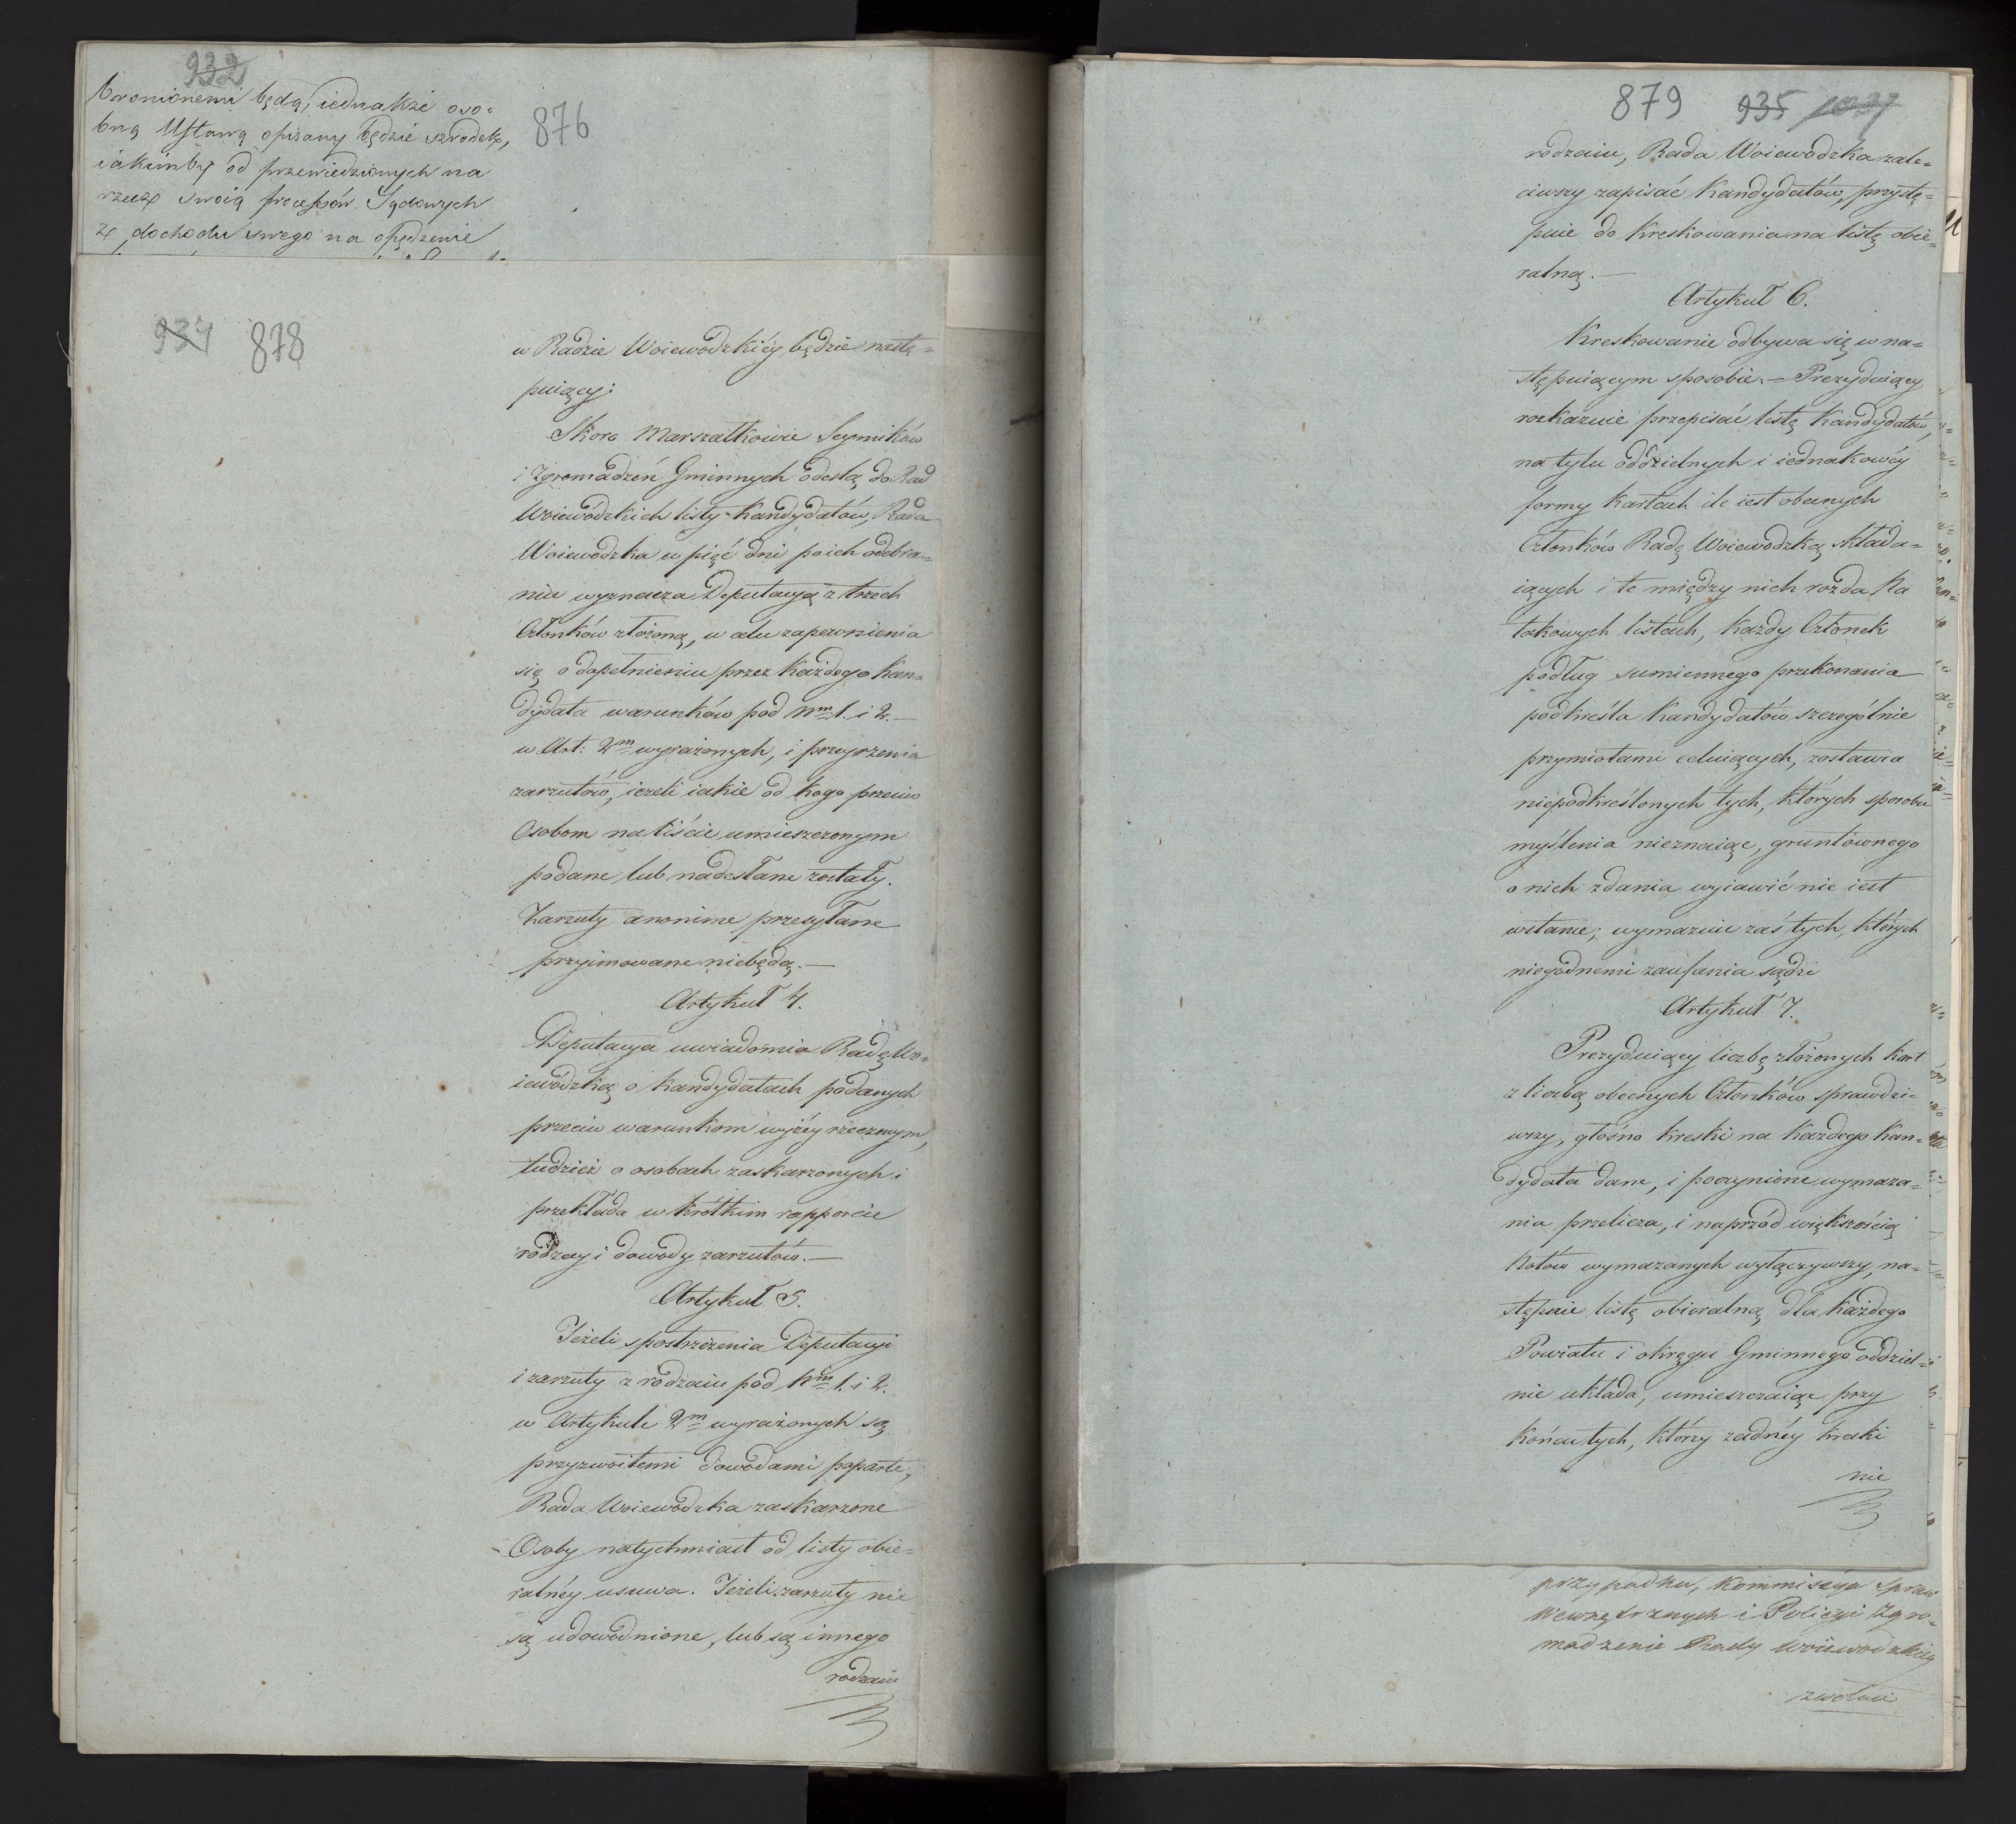 932
bronionemi będą, iednakże oso=
bną Ustawą opisany będzie szrodek,
876
iakimby od przewiedzionych na
rzecz swoią processów Sądowych
z dochodu swego na opędzenie
934 878
w Radzie Woiewodzkiéy będzie nastę=
puiący:
Skoro Marszałkowie Seymików
i Zgromadzeń Gminnych odeslą do Rad
Woiewódzkich listy Kandydatów, Rada
Woiewodzka w pięć dni po ich odebra=
niu wyznacza Deputacyą z trzech
Członków złożoną, w celu zapewnienia
się o dopełnieniu przez każdego Kan=
dydata warunków pod Nm 1. i 2.—
w Art: 2m wyrażonych, i przeyrzenia
zarzutów, ieżeli iakie od kogo przeciw
Osobom na liście umieszczonym
podane lub nadesłane zostały.
Zarzuty anonime przesyłane
przyimowane niebędą.—
Artykuł 4.
Deputacya uwiadomia Radę Wo=
iewódzką o kandydatach podanych
przeciw warunkom wyżéy rzeczonym,
tudzież o osobach zaskarzonych i
przekłada w krótkim rapporcie
rodzay i dowody zarzutów.—
Artykuł 5.
Jeżeli spostrzeżenia Deputacyi
i zarzuty z rodzaiu pod Nm 1. i 2.
w Artykule 2m wyrażonych są
przyzwoitemi dowodami poparte,
Rada Woiewodzka zaskarzone
Osoby natychmiast od listy obie=
ralnéy usuwa. Jeżeli zarzuty nie
są udowodnione, lub są innego
rodzaiu
879 935 1037
rodzaiu, Rada Woiewodzka zale=
ciwszy zapisać Kandydatów, przystę=
puie do kreskowania na listę obie=
ralną.—
Artykuł 6.
Kreskowanie odbywa się w na=
stępuiącym sposobie.— Prezyduiący
rozkazuie przepisać listę Kandydatów,
na tylu oddzielnych i iednakowéy
formy kartach ile iest obecnych
Członków Radę Woiewodzką składa=
iących i te między nich rozda Na
takowych listach, każdy Członek
podług sumiennego przekonania
podkreśla Kandydatów szczególnie
przymiotami celuiących, zostawia
niepodkreślonych tych, których sposobu
myślenia nieznaiąc, gruntównego
o nich zdania wyiawić nie iest
wstanie; wymazuie zaś tych, których
niegodnemi zaufania sądzi
Artykuł 7.
Prezyduiący liczbę złożonych kart
z liczbą obecnych Członków sprawdzi=
wszy, głośno kreski na każdego Kan=
dydata dane, i poczynione wymaza=
nia przelicza, i naprzód większością
Wotów wymazanych wyłączywszy, na=
stępnie listę obieralną dla każdego
Powiatu i okręgu Gminnego oddziel=
nie układa, umieszczaiąc przy
końcu tych, którzy żadnéy kreski
nie
przypadku, Kommissya Spraw
Wewnętrznych i Policyi Zgro=
madzenie Rady Woiewodzkiéy
zwołuie